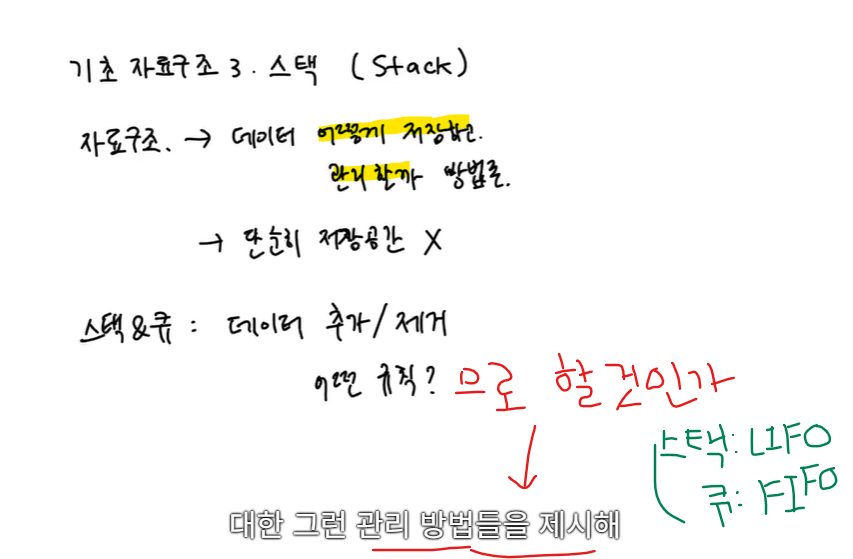 기초 자료구조 3. 스택 (Stack)
자료구조. → 데이터 어떻게 저장하고.
관리할까 방법론.
→ 단순히 저장공간 X
스택&큐 : 데이터 추가/제거
어떤 규칙? 므로 할것인가
스택: LIFO
큐: FIFO
대한 그런 관리 방법들을 제시해